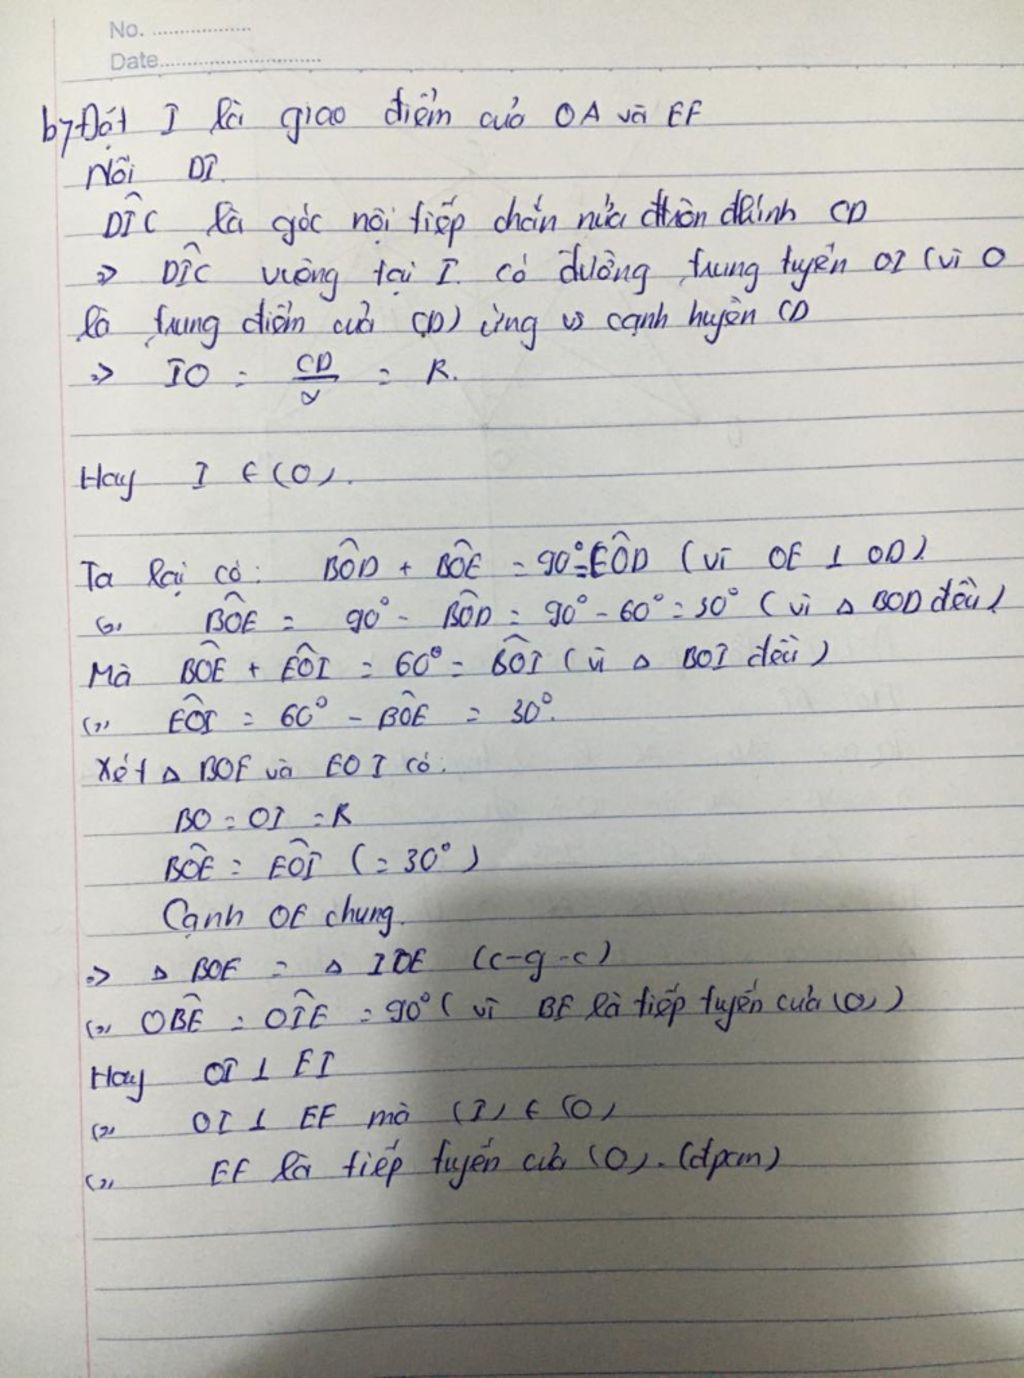 No. ..................
Date..............................
b, Đặt I là giao điểm của OA và EF
Nối DI.
DÎC là góc nội tiếp chắn nửa đường kính CD
=> DÎC vuông tại I. có đường trung tuyến OI (vì O
là trung điểm của CD) ứng vs cạnh huyền CD
=> IO = CD/2 = R.
Hay I ∈ (O).
Ta lại có: BÔD + BÔE = 90° = EÔD (vì OE ⊥ OD)
(=) BÔE = 90° - BÔD = 90° - 60° = 30° (vì △ BOD đều)
Mà BÔE + EÔI = 60° = BÔI (vì △ BOI đều)
(=) EÔI = 60° - BÔE = 30°.
Xét △ BOE và EOI có:
BO = OI = R
BÔE = EÔI (= 30°)
Cạnh OE chung.
=> △ BOE = △ IOE (c-g-c)
(=) OB̂E = OÎE = 90° (vì BE là tiếp tuyến của (O))
Hay OI ⊥ EI
(=) OI ⊥ EF mà (I) ∈ (O)
(=) EF là tiếp tuyến của (O). (đpcm)